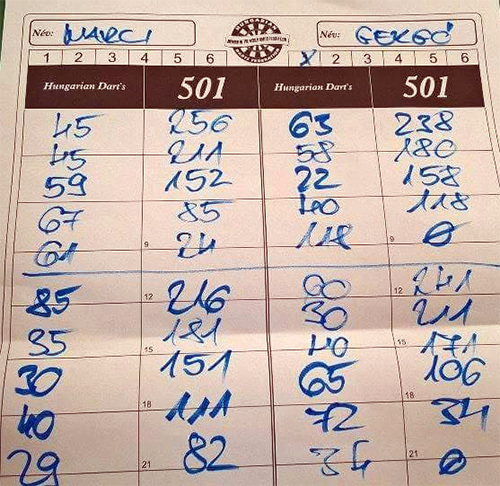 Név: MARCI HUNGARIAN Név: GERGŐ
1 2 3 4 5 6 X 2 3 4 5 6
Hungarian Dart's 501 Hungarian Dart's 501
45 256 63 238
45 211 58 180
59 152 22 158
67 85 40 118
61 9 24 118 9 0
85 12 216 60 12 241
35 181 30 211
15 40 15 171
30 151 65 106
40 18 111 72 18 34
29 21 82 34 21 0